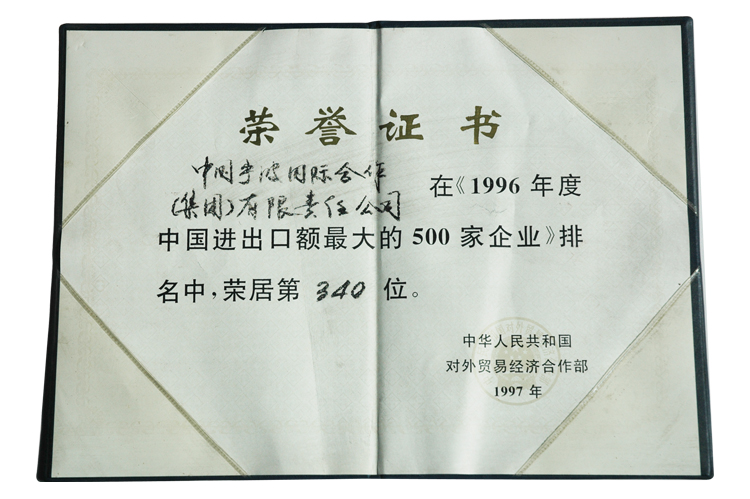 荣誉证书
中国宁波国际合作
(集团)有限责任公司 在《1996年度
中国进出口额最大的500家企业》排
名中,荣居第 340 位。
中华人民共和国
对外贸易经济合作部
1997年